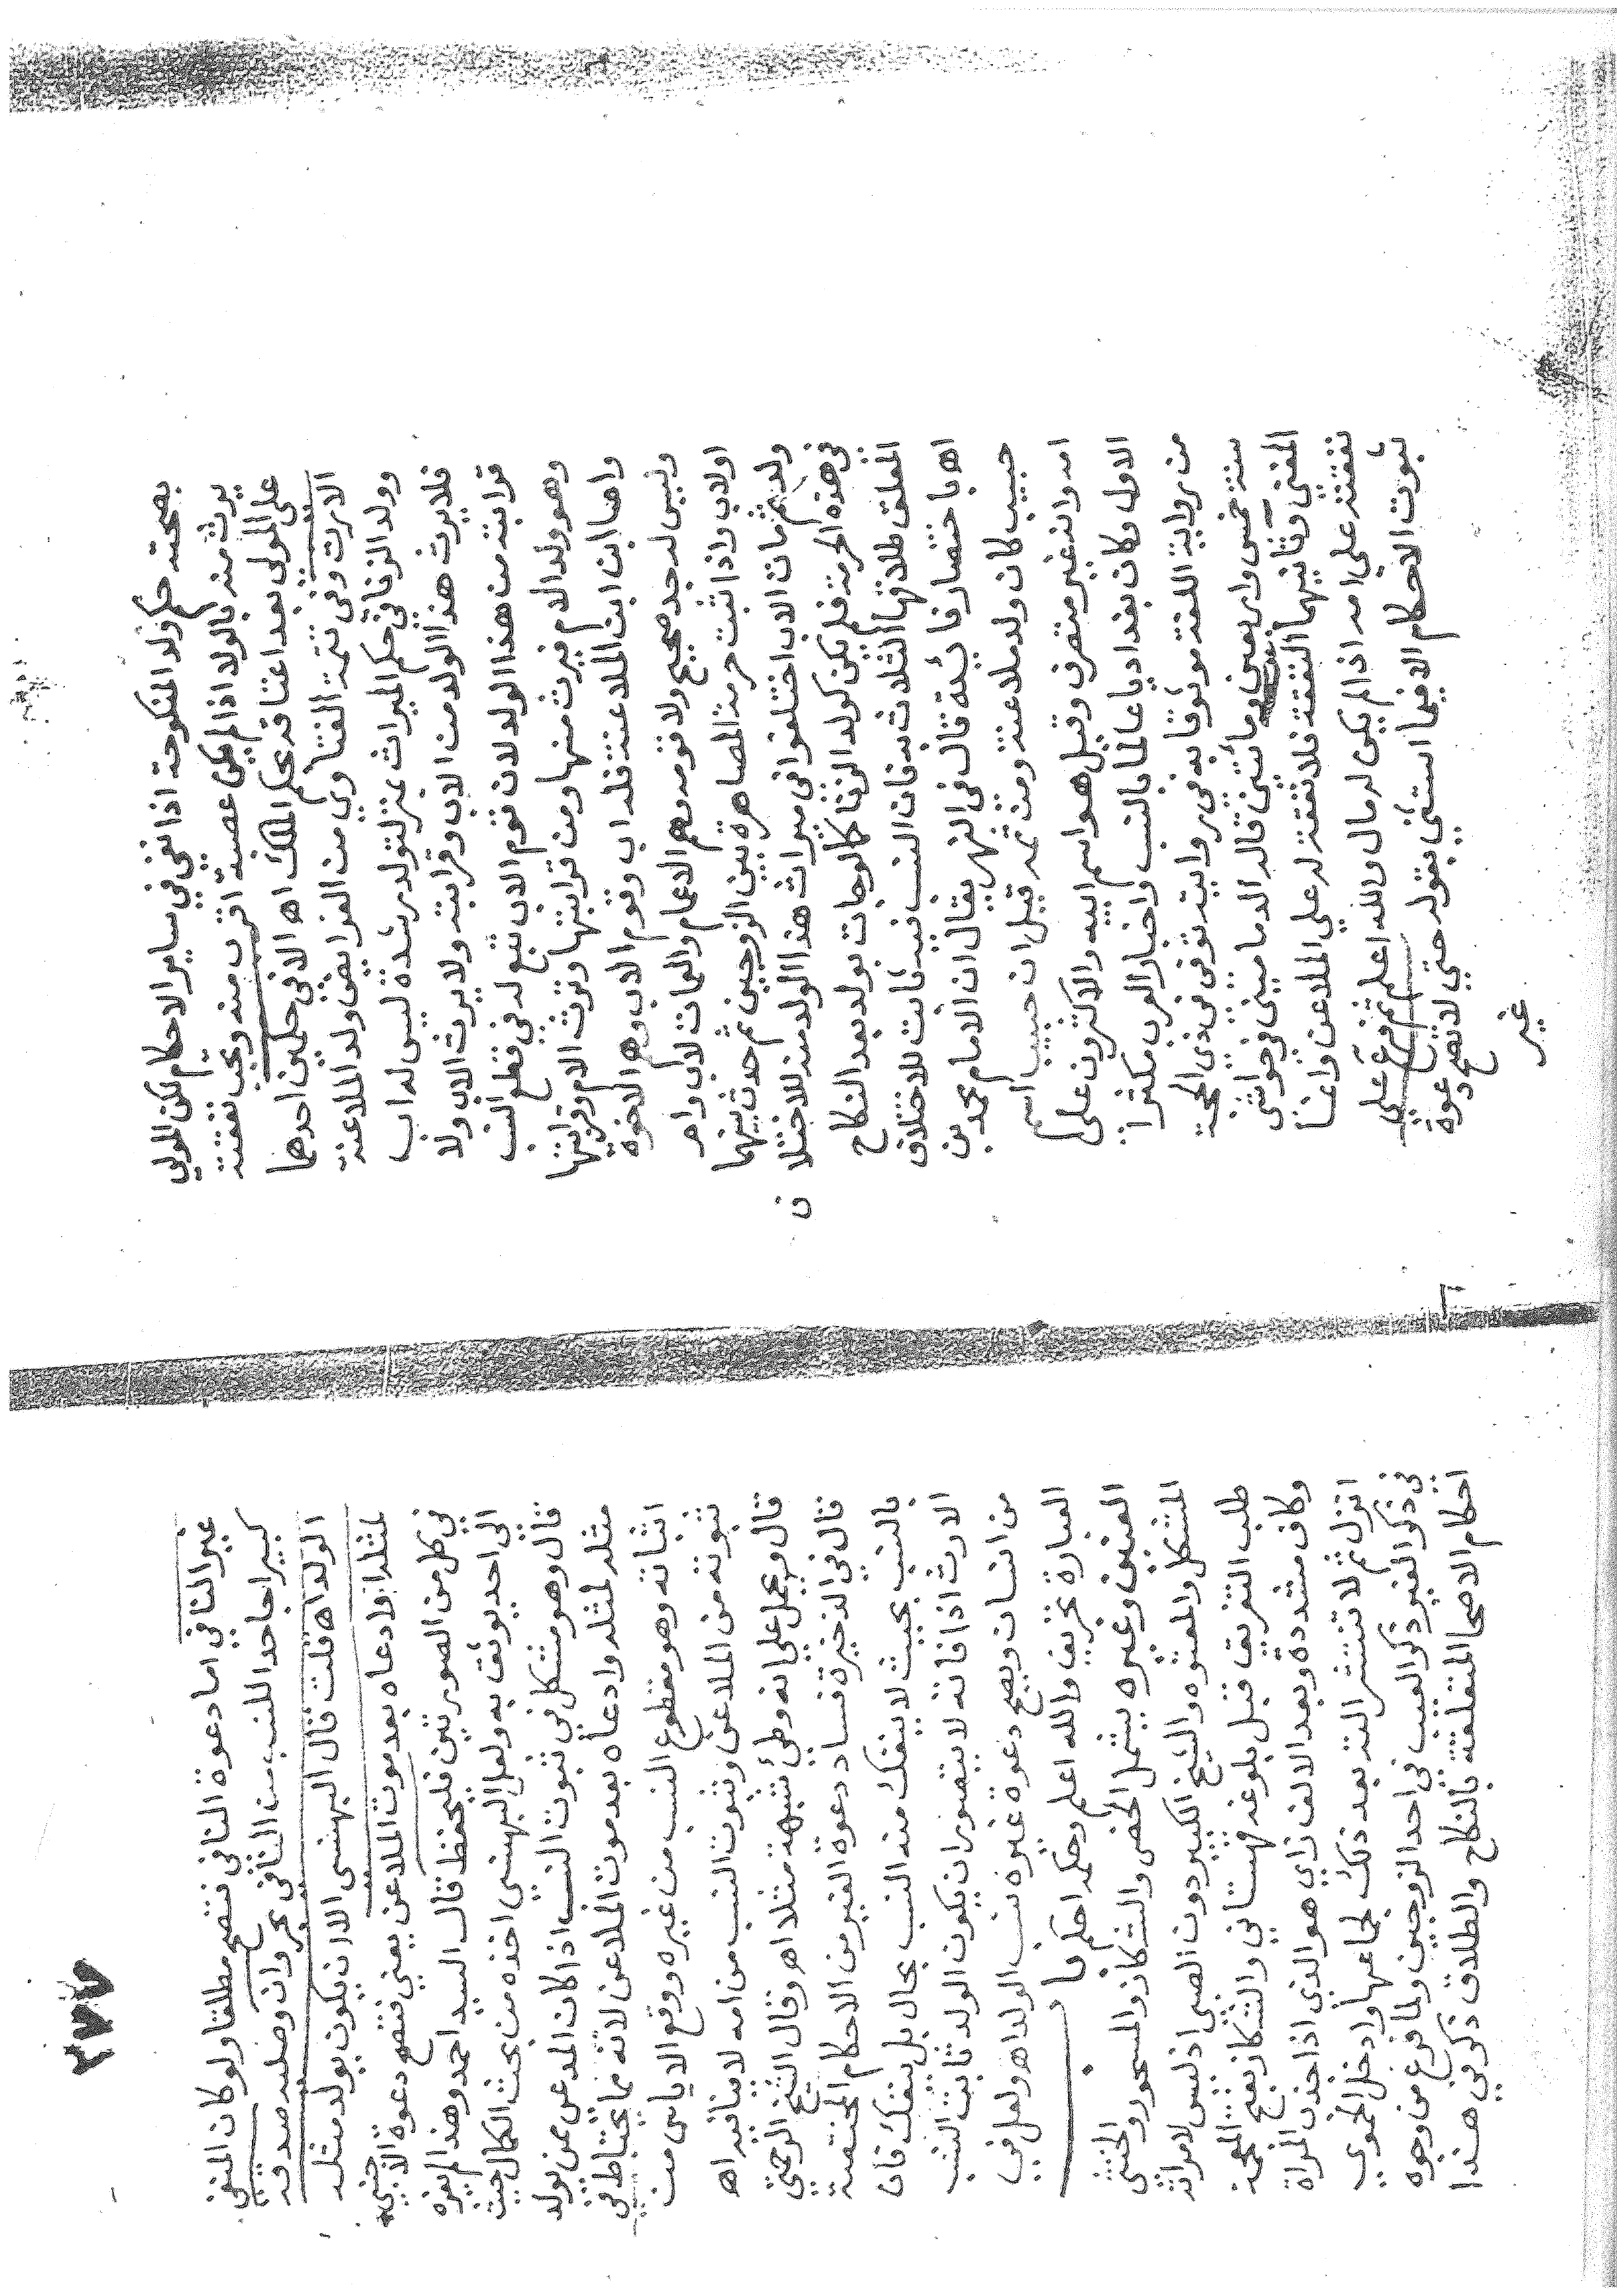 بصحته حكم ولد المنكوحة اذا نفي في ساير الاحكام لكن المولى
يرث منه بالولاء اذا لم يكن عصبة اقرب منه ويجب نفقته
على المولى بعد اعتاقه بحكم الملك اه الا في حكمين احدهما
الارث وفي تتمة الفتاوي من الفرايض ولد الملاعنة
وولد الزنا في حكم الميراث بمنزلة ولد رشدة ليس له اب
فلا يرث هذا الولد من الاب وقرابته ولا يرث الاب ولا
قرابته من هذا الولد لان قوم الاب تبع له في قطع النسب
وهو ولد الام فيرث منها ومن قرابتها وترث الام وقرابتها
واما ابن ابن الملاعنة فله اب وقوم الاب وهو الاخوة
وليس له جد صحيح ولا قومه وهم الاعمام والعمات لاب وام
اولاب واذا ثبت حرمة المصاهرة بين الزوجين ثم حدث بينهما
ولد ثم مات الاب اختلفوا في ميراث هذا الولد منه للاختلاف
في هذه الحرمة فلم يكن كولد الزنا كالوجات بولد بعد النكاح
المعلق طلاقها الثلاث به فان النسب فيه ثابت للاختلاف
اه باختصار فائدة قال في النهر يقال ان الامام محمد بن
حبيب كان ولد ملاعنة ومن ثمه قيل ان حبيب اسم
امه وانه غير متصرف وقيل هو اسم ابيه والاكثرون على
الاول وكان بغداديا عالما بالنسب واخبار العرب مكثرا
من رواية اللغة موثوقا به في روايته توفي في ذي الحجة
سنة خمس واربعين ومائتين قاله الدماميني في حواشي
المغني وثانيهما النفقة فلا نفقة له على الملاعن وانما
نفقته على امه اذا لم يكن له مال والله اعلم ثم فرع على
ثبوت الاحكام الا فيما استثني بقوله حتي لا تصح دعوة
غير
٢٧٧
غير النافي اما دعوة النافي فتصح مطلقا ولو كان المنفي
كبيرا جاحدا للنسب من النافي بحر وان وصليه صدقه
الولد اه قلت قال البهنسي الا ان يكون يولد مثله
لمثله او ادعاه بعد موت الملاعن يعني فتصح دعوة الاجنبي
في كل من الصورتين فليحفظ قال السيد احمد وهذا لم يعزه
الى احد يوثق به ولعل البهنسي اخذه من بحث الكمال حيث
قال وهو مشكل في ثبوت النسب اذا كان المدعي ممن يولد
مثله لمثله وادعاه بعد موت الملاعن لانه مما يحتاط في
اثباته وهو مقطوع النسب من غيره ووقع الاياس من
ثبوته من الملاعن وثبوت النسب من امه لا ينافيه اه
قال ويحمل على انه وطئ بشبهة مثلا اه وقال الشيخ الرحمتي
قال في الذخيرة فساد دعوة الغير من الاحكام المختصة
بالنسب بحيث لا ينفك منه النسب بحال بل ينفك فان
الارث اذا فاته لا يتصور ان يكون الولد ثابت النسب
من انسان ويصح دعوة غيره نسب الولد اه ولعل في
العبارة تحريف والله اعلم وحكمه احكم باب
العنين وغيره يشمل الخصي والشكاز والمسحور والخنثى
المشكل والمعتوه والشيخ الكبير دون الصبي اذ ليس لامراته
طلب التفريق قبل بلوغه قهستاني والشكاز بفتح المعجمة
وكاف مشددة وبعد الالف زاي هو الذي اذا جذب المراة
انزل ثم لا تنتشر الته بعد ذلك لجماعها وادخل الحموي
في ذكر الغير ذكر العيب في احد الزوجين ولما فرغ من وجوه
احكام الاصحا المتعلقة بالنكاح والطلاق ذكر في هذا